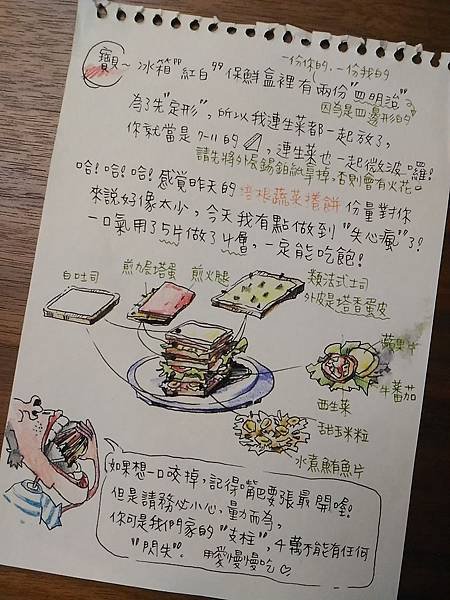 一份你的，一份我的
寶～冰箱"紅白"保鮮盒裡有兩份"四明治"
因為是四邊形的
為了先"定形"，所以我連生菜都一起放了，
你就當是7-11的，連生菜也一起微波囉！
請先將外層錫鉑紙拿掉，否則會有火花
哈！哈！哈！感覺昨天的培根蔬菜捲餅份量對你
來說好像太少，今天我有點做到"失心瘋"了！
一口氣用了5片做了4層，一定能吃飽！
白吐司
煎九层塔蛋
煎火腿
類法式土司
外皮是塔香蛋皮
蘋果片
牛蕃茄
西生菜
甜玉米粒
水煮鮪魚片
如果想一口咬掉，記得嘴巴要張最開喔！
但是請務必小心，量力而為，
你可是我們家的"支柱"，千萬不能有任何
"閃失"。用愛慢慢吃♡